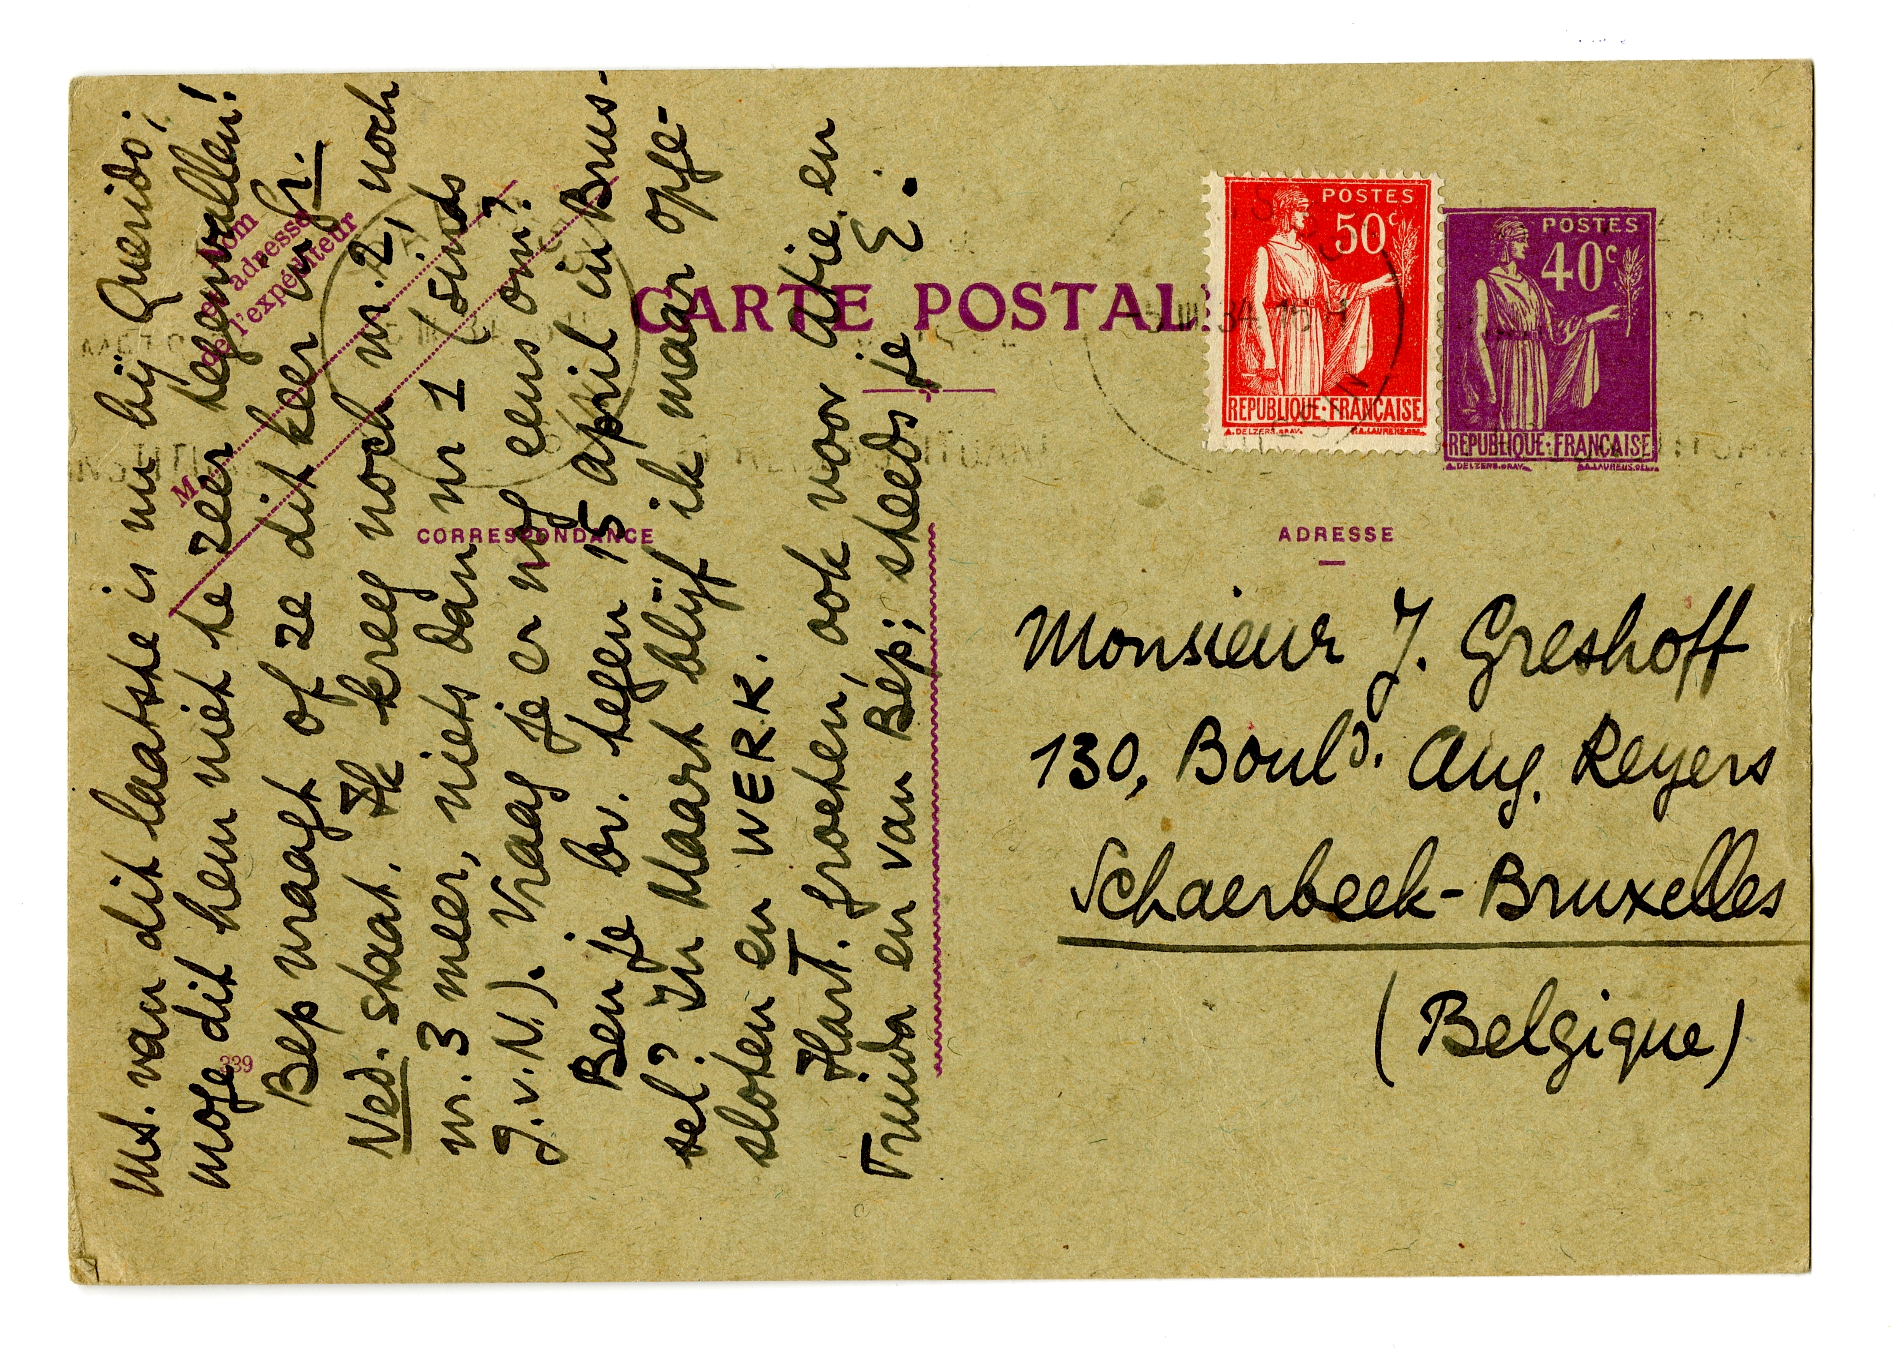 ms. van dit laatste is nu bij Querido;
moge dit hem niet te zeer tegenvallen!
Bep vraagt of ze dit keer in Gr.
Ned. staat. Ik kreeg noch nr. 2, noch
nr. 3 meer, niets dan nr 1 (sinds
J.v.N.). Vraag je er nog eens om?
Ben je br. tegen 15 april in Brus-
sel? In Maart blijf ik maar opge-
sloten en WERK.
Hart. groeten, ook voor Atie en
Truida en van Bep; steeds je E.
Nom
et adresse
de l'expéditeur
M
CARTE POSTALE
CORRESPONDANCE
339
POSTES
50c
REPUBLIQUE·FRANÇAISE
J.DELZERS.GRAV.
P.A.LAURENS.DEL.
POSTES
40c
REPUBLIQUE·FRANÇAISE
J.DELZERS.GRAV.
P.A.LAURENS.DEL.
-5 III 34 15 H
ADRESSE
Monsieur J. Greshoff
130, Bould. Aug. Reyers
Schaerbeek-Bruxelles
(Belgique)